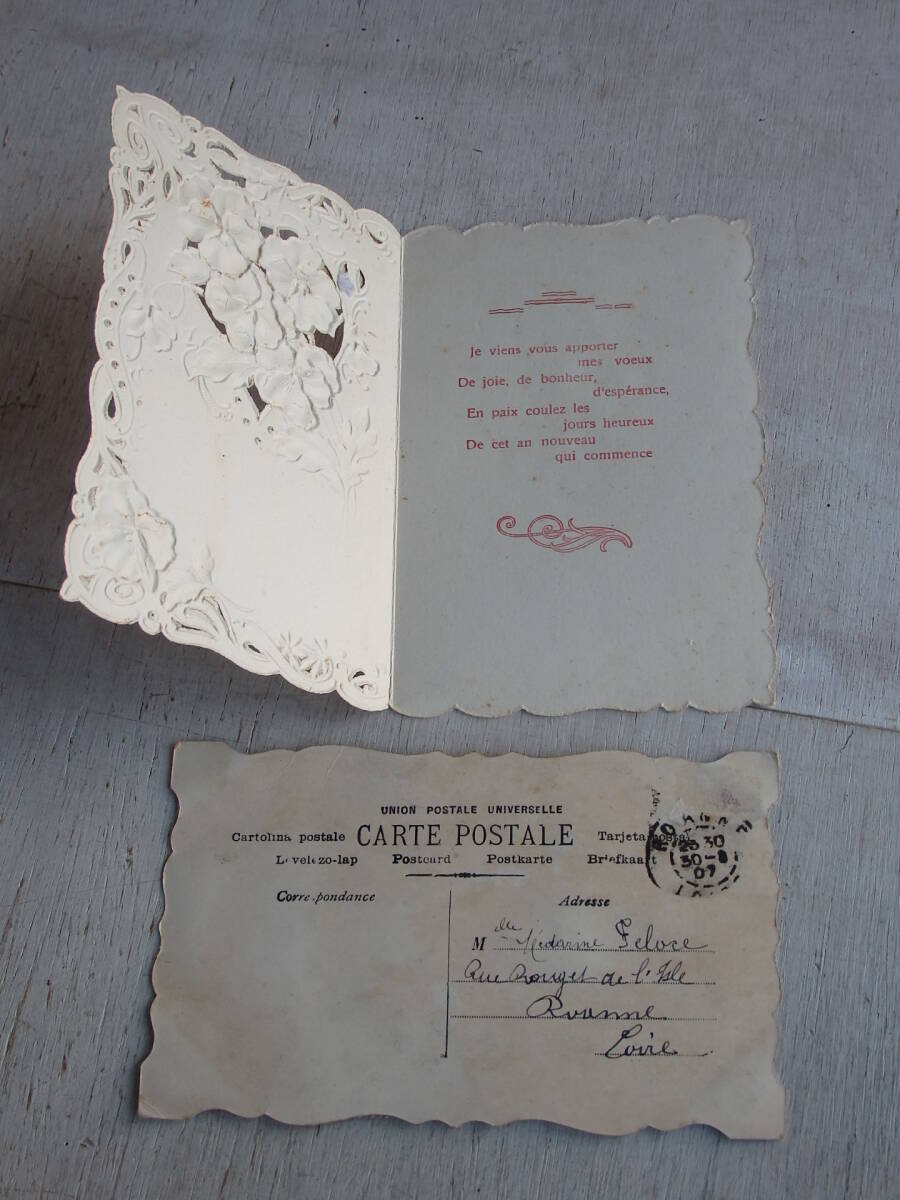 Je viens vous apporter
mes voeux
De joie, de bonheur,
d'espérance,
En paix coulez les
jours heureux
De cet an nouveau
qui commence
UNION POSTALE UNIVERSELLE
Cartolina postale CARTE POSTALE Tarjeta postal
Levelezo-lap Postcard Postkarte Briefkaart
Correspondance
Adresse
M elle
Rue Rouget de l'Isle
Roanne
Loire
30
30-8
07